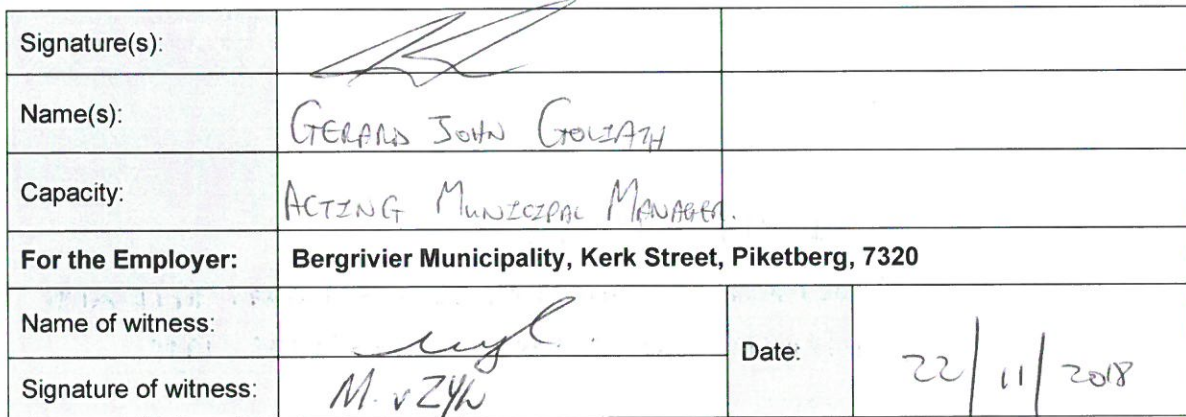 Signature(s):
Name(s): GERARD JOHN GOLIATH
Capacity: ACTING MUNICIPAL MANAGER.
For the Employer: Bergrivier Municipality, Kerk Street, Piketberg, 7320
Name of witness:
Date: 22/11/2018
Signature of witness: M. v ZYL